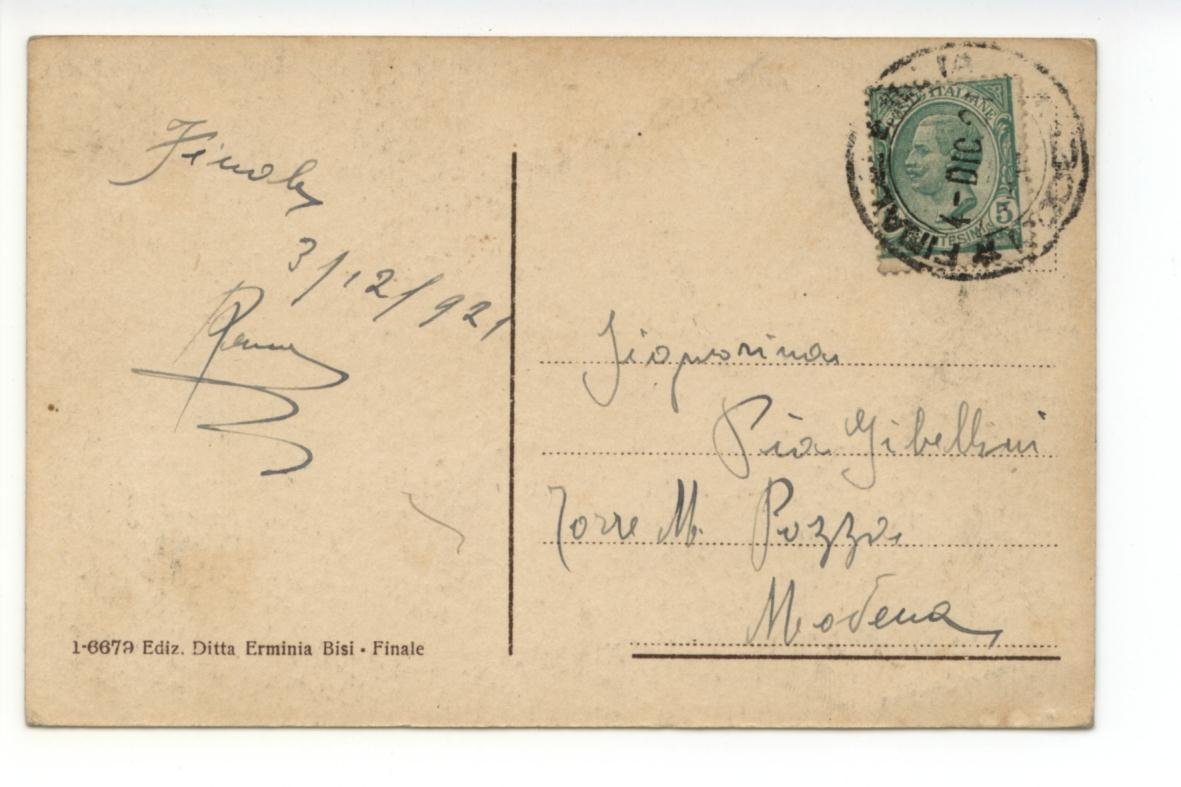 Finale
3/12/921
Signorina
Pia Gibellini
Torre M. Pozza
Modena
1-6679 Ediz. Ditta Erminia Bisi • Finale
POSTE ITALIANE
5
DIC
FINALE